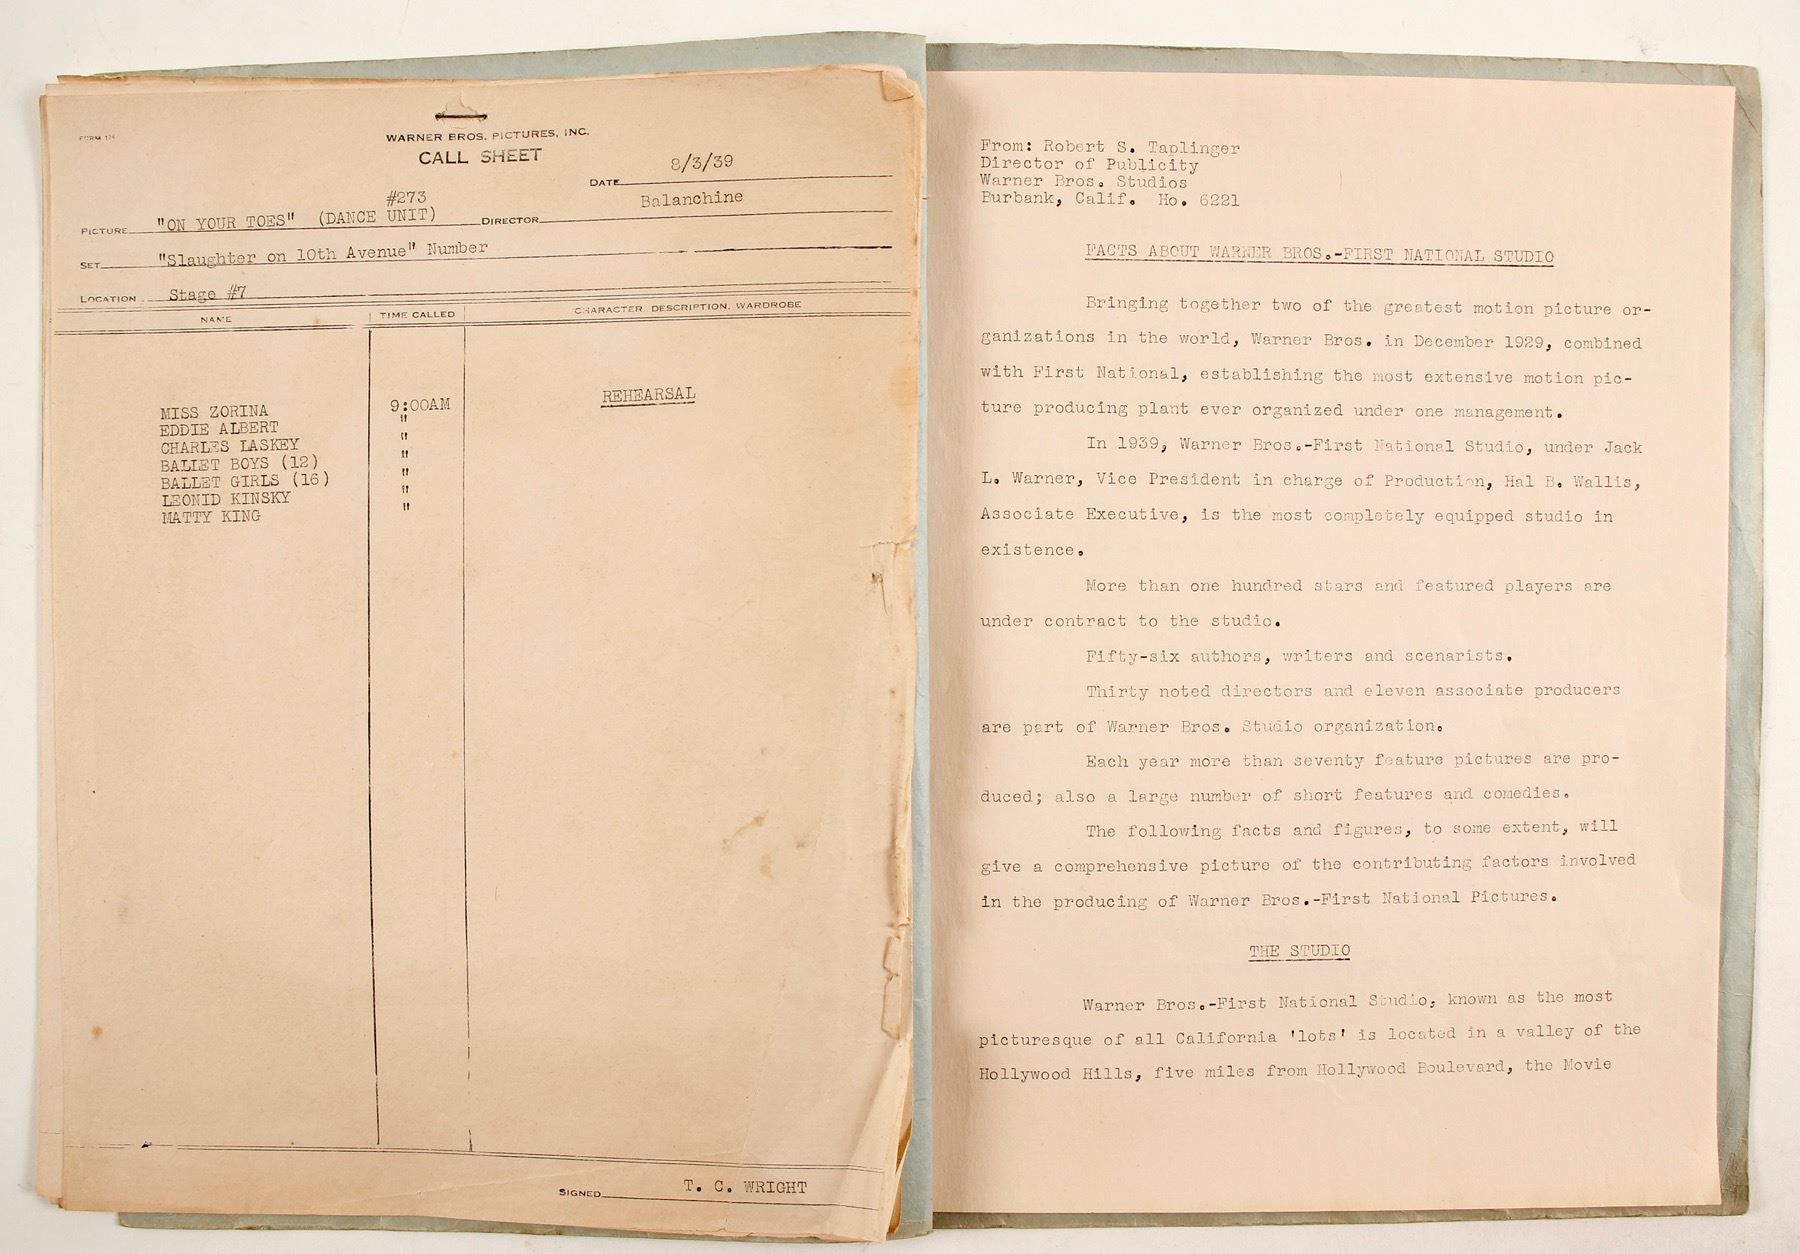 FORM 174
WARNER BROS. PICTURES, INC.
CALL SHEET
DATE 8/3/39
#273
PICTURE "ON YOUR TOES" (DANCE UNIT) DIRECTOR Balanchine
SET "Slaughter on 10th Avenue" Number
LOCATION Stage #7
NAME TIME CALLED CHARACTER DESCRIPTION, WARDROBE
REHEARSAL
MISS ZORINA 9:00AM
EDDIE ALBERT "
CHARLES LASKEY "
BALLET BOYS (12) "
BALLET GIRLS (16) "
LEONID KINSKY "
MATTY KING "
SIGNED T. C. WRIGHT
From: Robert S. Taplinger
Director of Publicity
Warner Bros. Studios
Burbank, Calif. Ho. 6221
FACTS ABOUT WARNER BROS.-FIRST NATIONAL STUDIO
Bringing together two of the greatest motion picture or-
ganizations in the world, Warner Bros. in December 1929, combined
with First National, establishing the most extensive motion pic-
ture producing plant ever organized under one management.
In 1939, Warner Bros.-First National Studio, under Jack
L. Warner, Vice President in charge of Production, Hal B. Wallis,
Associate Executive, is the most completely equipped studio in
existence.
More than one hundred stars and featured players are
under contract to the studio.
Fifty-six authors, writers and scenarists.
Thirty noted directors and eleven associate producers
are part of Warner Bros. Studio organization.
Each year more than seventy feature pictures are pro-
duced; also a large number of short features and comedies.
The following facts and figures, to some extent, will
give a comprehensive picture of the contributing factors involved
in the producing of Warner Bros.-First National Pictures.
THE STUDIO
Warner Bros.-First National Studio, known as the most
picturesque of all California 'lots' is located in a valley of the
Hollywood Hills, five miles from Hollywood Boulevard, the Movie